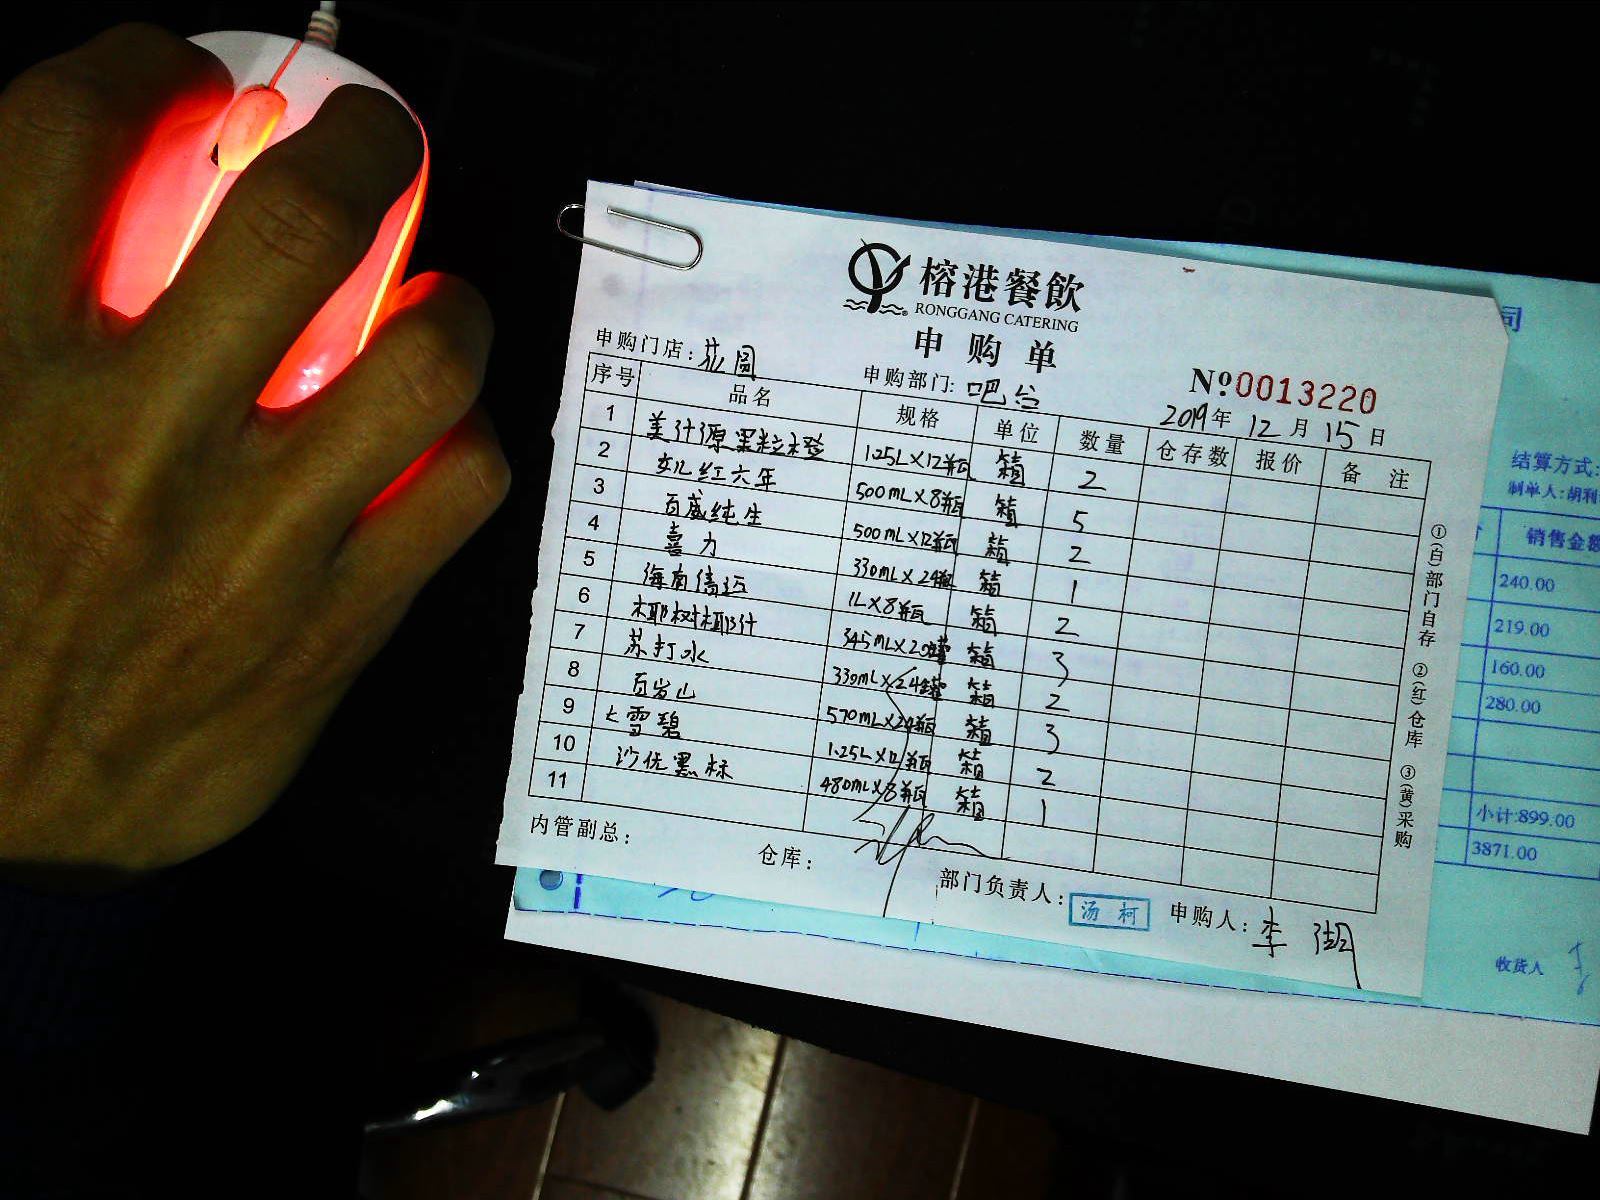 榕港餐飲
RONGGANG CATERING
申购单
申购门店: 花园 申购部门: 吧台 №0013220
2019年 12月 15日
序号 品名 规格 单位 数量 仓存数 报价 备注
1 美汁源果粒橙 1.25L×12瓶 箱 2
2 女儿红六年 500mL×8瓶 箱 5
3 百威纯生 500mL×12瓶 箱 2
4 喜力 330mL×24瓶 箱 1
5 海南清远 1L×8瓶 箱 2
6 椰树椰汁 345mL×20罐 箱 3
7 苏打水 330mL×24罐 箱 2
8 百岁山 570mL×24瓶 箱 3
9 大雪碧 1.25L×12瓶 箱 2
10 沙优黑标 480mL×8瓶 箱 1
11
内管副总: 仓库: 部门负责人: 汤柯 申购人: 李湖
①(白)部门自存 ②(红)仓库 ③(黄)采购
司
结算方式:
制单人:胡利
销售金额
240.00
219.00
160.00
280.00
小计:899.00
3871.00
收货人